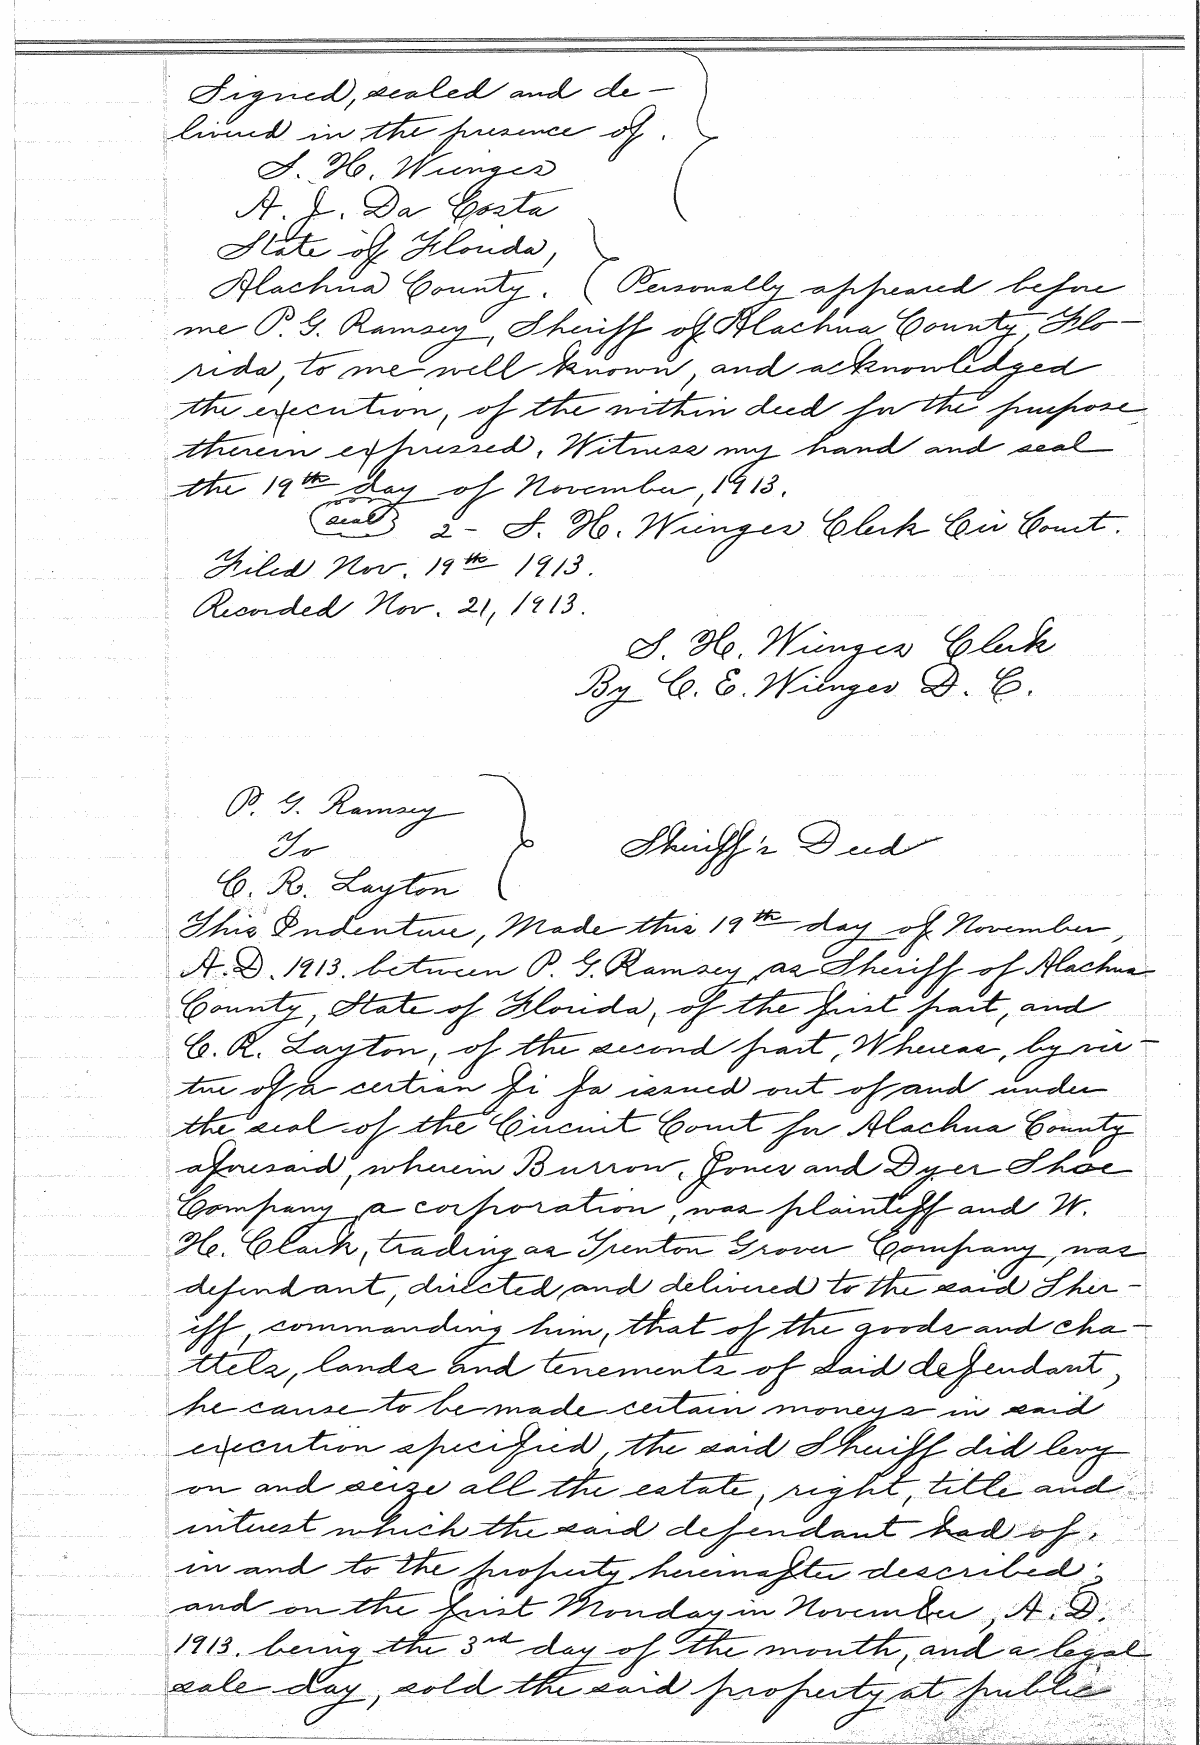 Signed, sealed and de-
livered in the presence of.
S. H. Wienges
A. J. Da Costa
State of Florida,
Alachua County. Personally appeared before
me P. G. Ramsey, Sheriff of Alachua County, Flo-
rida, to me well known, and acknowledged
the execution, of the within deed for the purpose
therein expressed. Witness my hand and seal
the 19th day of November, 1913.
(seal) 2- S. H. Wienges Clerk Cir Court.
Filed Nov. 19th 1913.
Recorded Nov. 21, 1913.
S. H. Wienges Clerk
By C. E. Wienges D. C.
P. G. Ramsey
To
Sheriff's Deed
C. R. Layton
This Indenture, Made this 19th day of November,
A. D. 1913. between P. G. Ramsey, as Sheriff of Alachua
County, State of Florida, of the first part, and
C. R. Layton, of the second part, Whereas, by vir-
tue of a certian fi fa issued out of and under
the seal of the Circuit Court for Alachua County
aforesaid, wherein Burrow, Jones and Dyer Shoe
Company, a corporation, was plaintiff and W.
H. Clark, trading as Trenton Grover Company, was
defendant, directed and delivered to the said Sher-
iff, commanding him, that of the goods and cha-
ttels, lands and tenements of said defendant,
he cause to be made certain moneys in said
execution specified, the said Sheriff did levy
on and seize all the estate, right, title and
interest which the said defendant had of,
in and to the property hereinafter described;
and on the first Monday in November, A. D.
1913. being the 3rd day of the month, and a legal
sale day, sold the said property at public